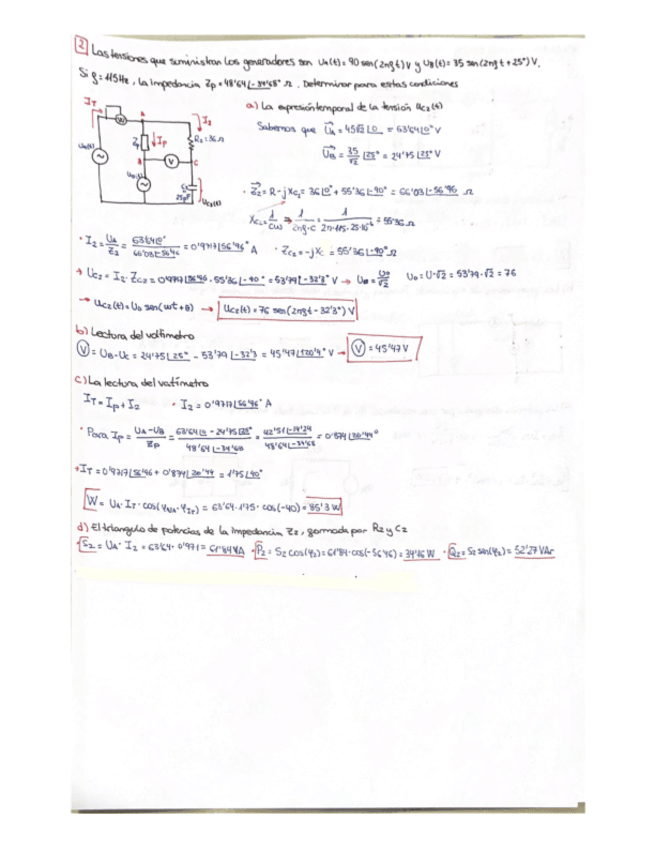 2 Las tensiones que suministran los generadores son UA(t) = 90 sen(2πft) V y UB(t) = 35 sen(2πft + 25°) V.
Si f = 115Hz, la impedancia Zp = 48'64 ∟-34'68° Ω. Determinar para estas condiciones
a) La expresión temporal de la tensión uC2(t)
IT W A I2
Zp Ip R2 = 36Ω
UA(t) B V C
UB(t) C2 25μF UC2(t)
Sabemos que UA = 45√2 ∟0 = 63'64∟0° V
UB = 35/√2 ∟25° = 24'75 ∟25° V
· Z2 = R - jXC2 = 36∟0° + 55'36 ∟-90° = 66'03 ∟-56'96 Ω
XC2 = 1/Cω = 1/2πf·C = 1/2π·115·25·10^-6 = 55'36 Ω
· I2 = UA/Z2 = 63'64∟0°/66'03 ∟-56'96 = 0'9717 ∟56'96° A · ZC2 = -jXC = 55'36 ∟-90° Ω
→ UC2 = I2 · ZC2 = 0'9717 ∟56'96 · 55'36 ∟-90° = 53'79 ∟-32'3° V → U0 = U0/√2 U0 = U·√2 = 53'79·√2 = 76
→ UC2(t) = U0 sen(ωt + θ) → UC2(t) = 76 sen(2πft - 32'3°) V
b) Lectura del voltímetro
V = UB - UC = 24'75 ∟25° - 53'79 ∟-32'3 = 45'47 ∟120'4° V → V = 45'47 V
c) La lectura del vatímetro
IT = Ip + I2 · I2 = 0'9717 ∟56'96° A
· Para Ip = UA - UB/Zp = 63'64∟0 - 24'75 ∟25°/48'64 ∟-34'68 = 42'51 ∟-14'24/48'64 ∟-34'68 = 0'874 ∟20'44°
→ IT = 0'9717 ∟56'96 + 0'874 ∟20'44 = 1'75 ∟40°
W = UA · IT · cos(φUA - φIT) = 63'64 · 1'75 · cos(-40) = 85'3 W
d) El triangulo de potencias de la impedancia Z2, formada por R2 y C2
· S2 = UA · I2 = 63'64 · 0'971 = 61'84 VA · P2 = S2 cos(φ2) = 61'84 · cos(-56'96) = 34'16 W · Q2 = S2 sen(φ2) = 52'27 VAr